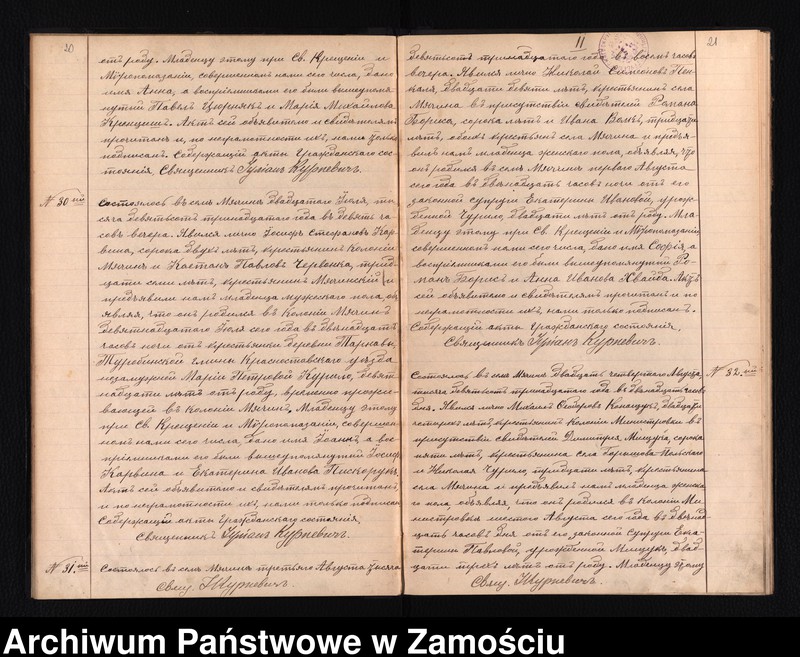 20
отъ роду. Младенцу этому при Св. Крещеніи и
Мѵропомазаніи, совершенномъ нами сего числа, дано
имя Анна, а воспріемниками его были вышеупомя-
нутый Павелъ и Марія Михайлова
Актъ сей объявителю и свидѣтелямъ
прочитанъ и, по неграмотности ихъ, нами только
подписанъ. Содержащій акты Гражданскаго сос-
тоянія, Священникъ Іуліанъ Курневичъ.
№ 30ый
Состоялось въ селѣ Мячинѣ двадцатаго Іюля, ты-
сяча девятьсотъ тринадцатаго года въ девять ча-
совъ вечера. Явился лично Іосифъ Стефановъ Кар-
вина, сорока двухъ лѣтъ, крестьянинъ колоніи
Мячинъ и Павловъ Червонка, трид-
цати семи лѣтъ, крестьянинъ Мячинскій и
предъявили намъ младенца мужескаго пола, об
являя, что онъ родился въ колоніи Мячинъ
девятнадцатаго Іюля сего года въ двѣнадцать
часовъ ночи отъ крестьянки деревни Тарнавы,
Туробинской гмины Красноставскаго уѣзда
незамужней Маріи Петровой Курило, девят
надцати лѣтъ отъ роду, временно прожи-
вающей въ колоніи Мячинъ. Младенцу этому
при Св. Крещеніи и Мѵропомазаніи, совершен
номъ нами сего числа, дано имя Іоаннъ, а вос
пріемниками его были вышеупомянутый Іосифъ
Карвина и Екатерина Иванова Пискорчукъ
Актъ сей объявителю и свидѣтелямъ прочитанъ,
и по неграмотности ихъ, нами только подписан
Содержащій акты гражданскаго состоянія,
Священникъ Іуліанъ Курневичъ.
№ 31.ый
Состоялось въ селѣ Мячинѣ третьяго Августа тысяча
Свящ. І Курневичъ.
11
21
девятьсотъ тринадцатаго года въ восемь часовъ
вечера. Явился лично Николай Симеоновъ
двадцати девяти лѣтъ, крестьянинъ села
Мячина въ присутствіи свидѣтелей Романа
Бориса, сорока лѣтъ и Ивана Волкъ, тридцати
лѣтъ, обоихъ крестьянъ села Мячина и предъя-
вилъ намъ младенца женскаго пола, объявляя, что
онъ родился въ селѣ Мячинѣ перваго Августа
сего года въ двѣнадцать часовъ ночи отъ его
законной супруги Екатерины Ивановой, урож-
денной Чурило, двадцати лѣтъ отъ роду. Мла-
денцу этому при Св. Крещеніи и Мѵропомазаніи
совершенномъ нами сего числа, дано имя Софія, а
воспріемниками его были вышеупомянутый Ро-
манъ Борисъ и Анна Иванова Хвайда. Актъ
сей объявителю и свидѣтелямъ прочитанъ и по
неграмотности ихъ, нами только подписанъ.
Содержащій акты Гражданскаго состоянія,
Священникъ Іуліанъ Курневичъ.
№ 32.ый
Состоялось въ селѣ Мячинѣ двадцать четвертаго Августа,
тысяча девятьсотъ тринадцатаго года въ двѣнадцать часовъ
дня. Явился лично Михаилъ Ѳедоровъ двадцати
четырехъ лѣтъ, крестьянинъ колоніи Министровки въ
присутствіи свидѣтелей Димитрія Мищука, сорока
пяти лѣтъ, крестьянина села Польскаго
и Николая Чурило, тридцати лѣтъ, крестьянина
села Мячина и предъявилъ намъ младенца женска
го пола, объявляя, что онъ родился въ колоніи Ми-
нистровкѣ шестого Августа сего года въ двѣнад-
цать часовъ дня отъ его законной супруги Ека-
терины Павловой, урожденной Мищукъ, двад-
цати трехъ лѣтъ отъ роду. Младенцу этому
Свящ. І Курневичъ.
Archiwum Państwowe w Zamościu